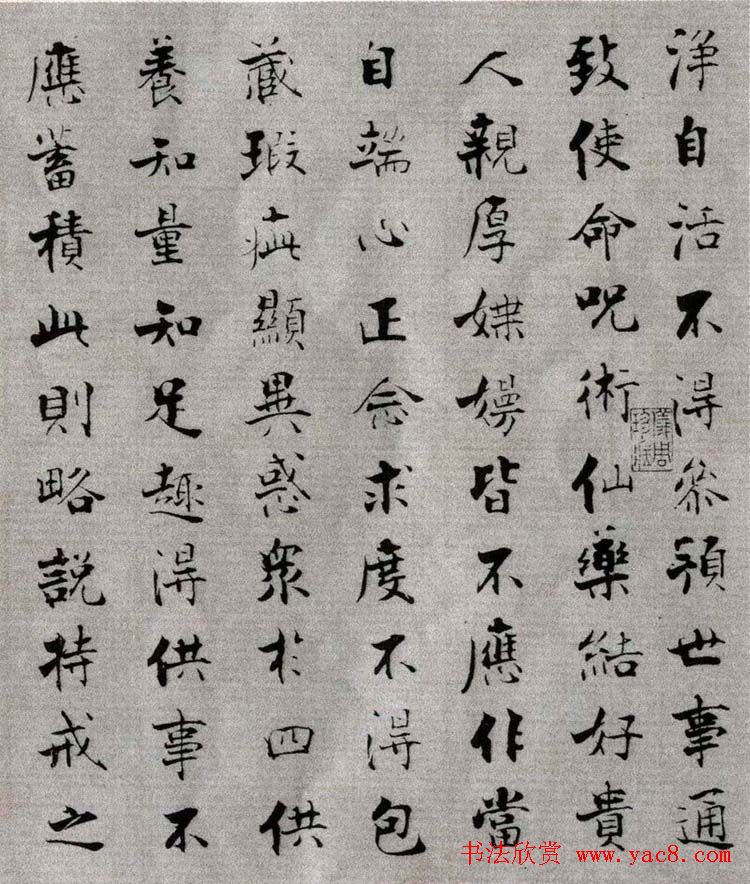 淨自活不得參預世事通
致使命呪術仙藥結好貴
人親厚媟嫚皆不應作當
自端心正念求度不得包
藏瑕疵顯異惑衆於四供
養知量知足趣得供事不
應蓄積此則略説持戒之
书法欣赏 www.yac8.com